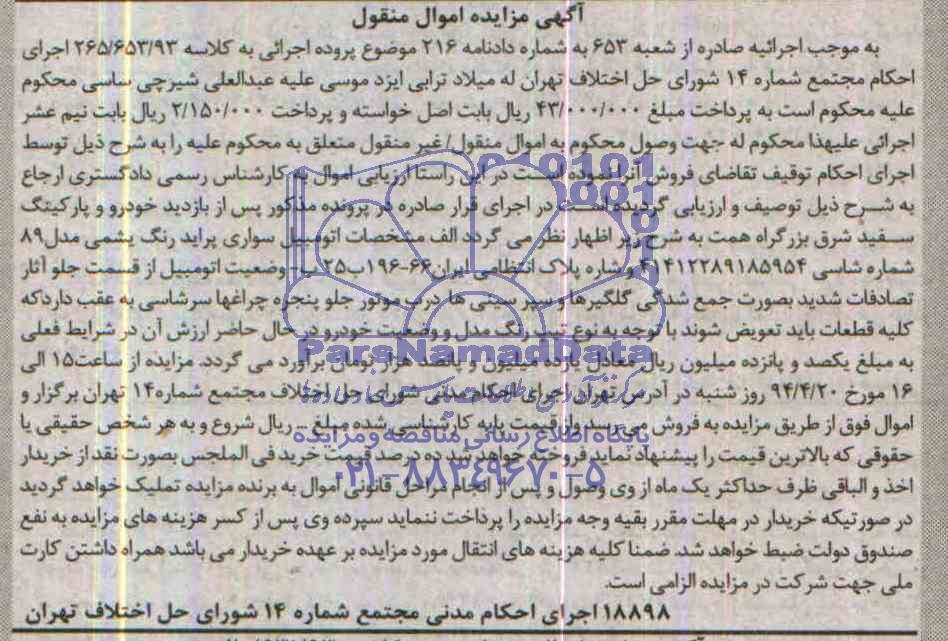 آگهی مزایده اموال منقول
به موجب اجرائیه صادره از شعبه ۶۵۳ به شماره دادنامه ۲۱۶ موضوع پروده اجرائی به کلاسه ۲۶۵/۶۵۳/۹۳ اجرای
احکام مجتمع شماره ۱۴ شورای حل اختلاف تهران له میلاد ترابی ایزد موسی علیه عبدالعلی شیرچی ساسی محکوم
علیه محکوم است به پرداخت مبلغ ۴۳/۰۰۰/۰۰۰ ریال بابت اصل خواسته و پرداخت ۲/۱۵۰/۰۰۰ ریال بابت نیم عشر
اجرائی علیهذا محکوم له جهت وصول محکوم به اموال منقول/غیر منقول متعلق به محکوم علیه را به شرح ذیل توسط
اجرای احکام توقیف تقاضای فروش آنرا نموده است در این راستا ارزیابی اموال به کارشناس رسمی دادگستری ارجاع
به شرح ذیل توصیف و ارزیابی گردیده است در اجرای قرار صادره در پرونده مذکور پس از بازدید خودرو و پارکینگ
سفید شرق بزرگراه همت به شرح زیر اظهار نظر می گردد الف مشخصات اتومبیل سواری پراید رنگ یشمی مدل۸۹
شماره شاسی ۴۱۴۱۲۲۸۹۱۸۵۹۵۴ وشاره پلاک انتظامی ایران۶۶-۱۹۶ب۲۵ ب- وضعیت اتومبیل از قسمت جلو آثار
تصادفات شدید بصورت جمع شدگی گلگیرها و سپر سینی ها درب موتور جلو پنجره چراغها سرشاسی به عقب داردکه
کلیه قطعات باید تعویض شوند با توجه به نوع تیپ رنگ مدل و وضعیت خودرو در حال حاضر ارزش آن در شرایط فعلی
به مبلغ یکصد و پانزده میلیون ریال معادل یازده میلیون و پانصد هزار تومان برآورد می گردد. مزایده از ساعت۱۵ الی
۱۶ مورخ ۹۴/۴/۲۰ روز شنبه در آدرس تهران اجرای احکام مدنی شورای حل اختلاف مجتمع شماره۱۴ تهران برگزار و
اموال فوق از طریق مزایده به فروش می رسد و قیمت پایه کارشناسی شده مبلغ ... ریال شروع و به هر شخص حقیقی یا
حقوقی که بالاترین قیمت را پیشنهاد نماید فروخته خواهد شد ده درصد قیمت خرید فی الملجس بصورت نقد از خریدار
اخذ و الباقی ظرف حداکثر یک ماه از وی وصول و پس از انجام مراحل قانونی اموال به برنده مزایده تملیک خواهد گردید
در صورتیکه خریدار در مهلت مقرر بقیه وجه مزایده را پرداخت ننماید سپرده وی پس از کسر هزینه های مزایده به نفع
صندوق دولت ضبط خواهد شد. ضمنا کلیه هزینه های انتقال مورد مزایده بر عهده خریدار می باشد همراه داشتن کارت
ملی جهت شرکت در مزایده الزامی است.
۱۸۸۹۸ اجرای احکام مدنی مجتمع شماره ۱۴ شورای حل اختلاف تهران
ParsNamadData
پایگاه اطلاع رسانی مناقصه و مزایده
۰۲۱-۸۸۳۴۹۶۷۰-۵